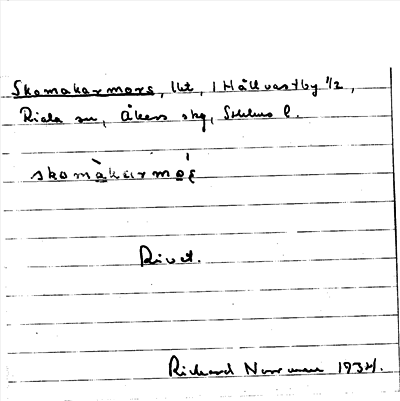 Skomakarmora, lht, i Hällvastby 1/2,
Riala sn, Åkers skg, Sthlms l.
skomàkarmó
Rivet.
Richard Norrman 1934.